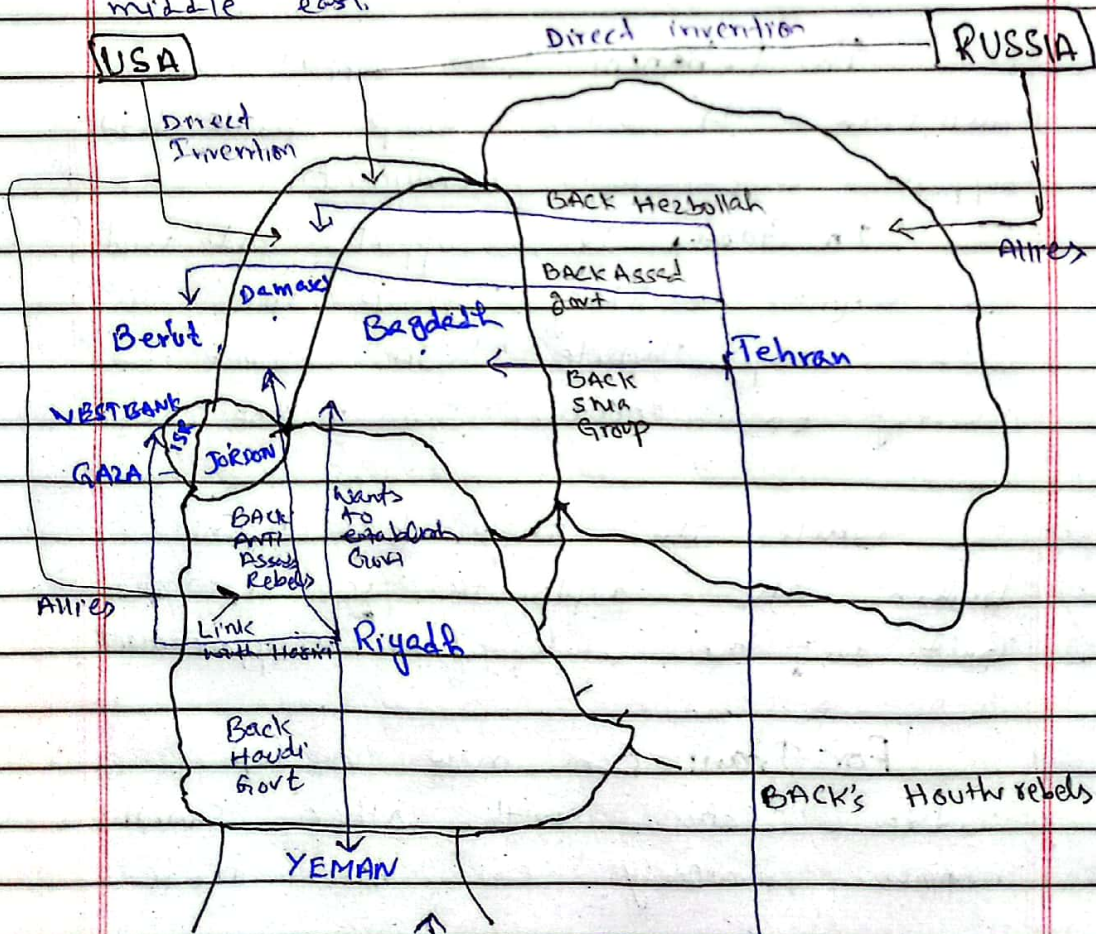 middle east.
USA
Direct invention
RUSSIA
Direct
Invention
BACK Hezbollah
Allies
BACK Assad
govt
Damases
Berut
Bagdadh
Tehran
BACK
Shia
Group
WESTBANK
ISR
JORDON
GAZA
Wants
to
establish
Govt
BACK
ANTI
Assad
Rebels
Allies
Link
with Hariri
Riyadh
Back
Haudi
Govt
BACK's Houthi rebels
YEMAN